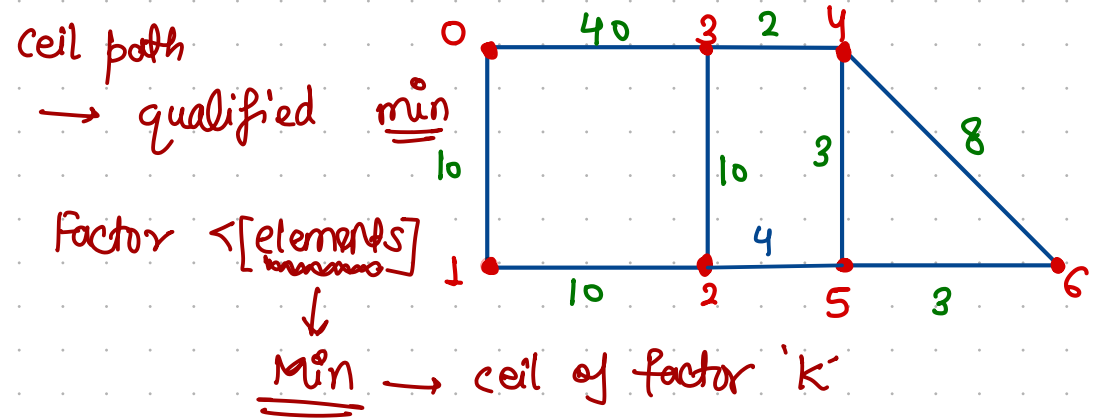 ceil path
→ qualified min
Factor < [elements]
↓
Min → ceil of factor 'K'
0 40 3 2 4
10 10 3 8
4
1 10 2 5 3 6